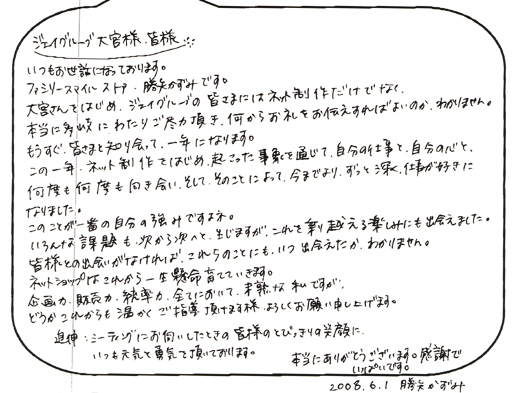 ジェイグループ 大宮様、皆様
いつもお世話になっております。
ファミリースマイルストア・勝矢かずみです。
大宮さんをはじめ、ジェイグループの皆さまにはネット制作だけでなく、
本当に多岐にわたりご尽力頂き、何からお礼をお伝えすればよいのか、わかりません。
もうすぐ、皆さまと知り合って、一年になります。
この一年、ネット制作をはじめ、起こった事象を通じて、自分の仕事と、自分の心と、
何度も何度も向き合い、そして、そのことによって、今までより、ずっと深く、仕事が好きに
なりました。
このことが一番の自分の強みですよネ。
いろんな課題も、次から次へと、生じますが、これを乗り越える楽しみにも出会えました。
皆様との出会いがなければ、これらのことにも、いつ出会えたか、わかりません。
ネットショップはこれから一生懸命育てていきます。
企画力、販売力、統率力、全てにおいて、未熟な私ですが、
どうかこれからも温かくご指導頂けます様、よろしくお願い申し上げます。
追伸：ミーティングにお伺いしたときの皆様のとびっきりの笑顔に、
いつも元気と勇気を頂いております。
本当にありがとうございます。感謝で
いっぱいです。
2008.6.1 勝矢かずみ